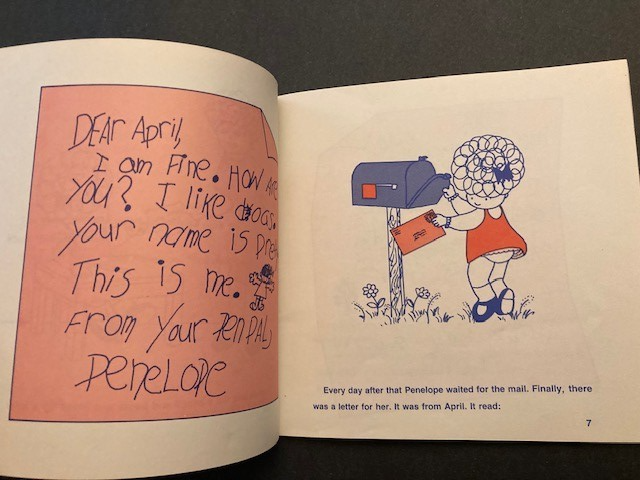 DEAr April,
I am Fine. HOW Are
YOU? I like dogs.
Your name is
This is me.
From Your PEN PAL,
PeneLOPe
Every day after that Penelope waited for the mail. Finally, there
was a letter for her. It was from April. It read:
7